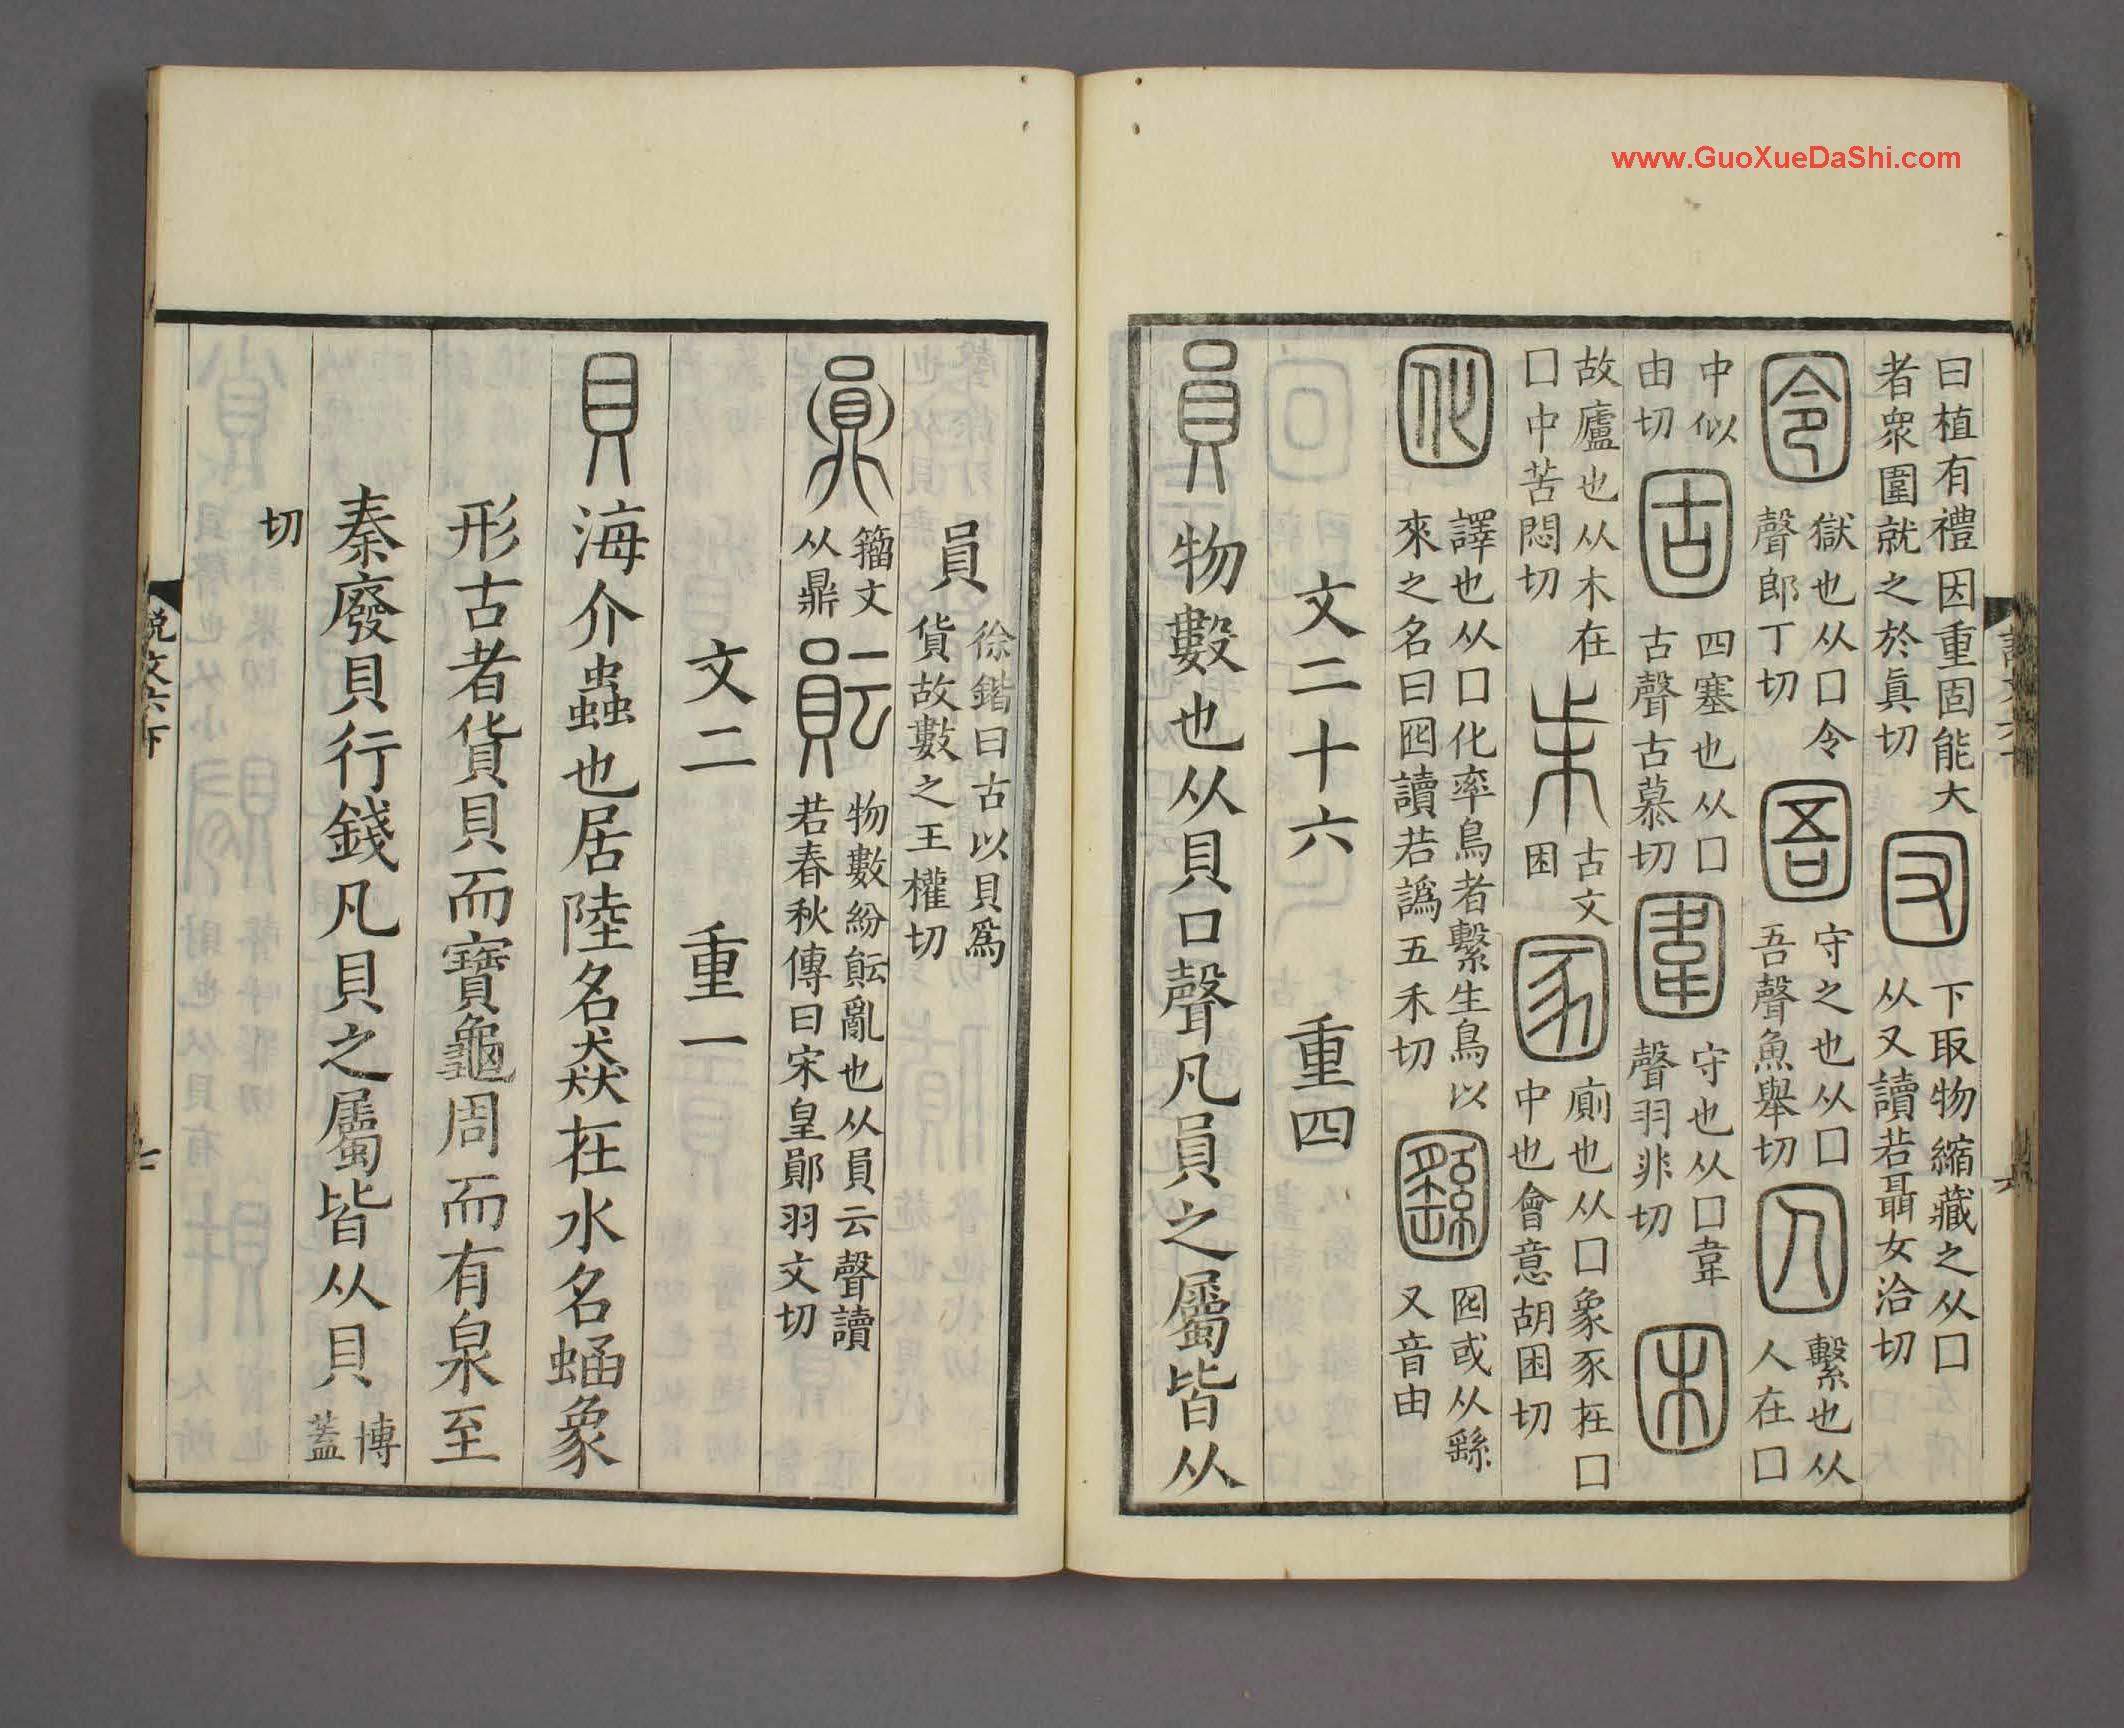 曰植有禮因重固能大
者衆圍就之於眞切
㘝
下取物縮藏之从囗
从又讀若聶女洽切
囹
獄也从囗令
聲郎丁切
圄
守之也从囗
吾聲魚舉切
囚
繫也从
人在囗
中似
由切
固
四塞也从囗
古聲古慕切
圍
守也从囗韋
聲羽非切
困
故廬也从木在
囗中苦悶切
𣏔
古文
困
圂
廁也从囗象豕在囗
中也會意胡困切
囮
譯也从囗化率鳥者繫生鳥以
來之名曰囮讀若譌五禾切
𡈙
囮或从繇
又音由
文二十六 重四
員 物數也从貝口聲凡員之屬皆从
員
徐鍇曰古以貝爲
貨故數之王權切
𪔅
籀文
从鼎
𧶊
物數紛𧶊亂也从員云聲讀
若春秋傳曰宋皇鄖羽文切
文二 重一
貝 海介蟲也居陸名猋在水名蜬象
形古者貨貝而寶龜周而有泉至
秦廢貝行錢凡貝之屬皆从貝
博
蓋
切
説文六下
七
www.GuoXueDaShi.com